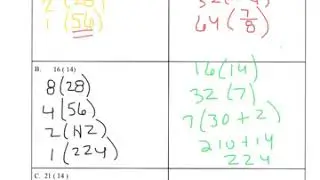 2(28)
1(56)
64(7/8)
B. 16 ( 14)
8(28)
4(56)
2(112)
1(224)
16(14)
32(7)
7(30+2)
210+14
224
C. 21 ( 14 )